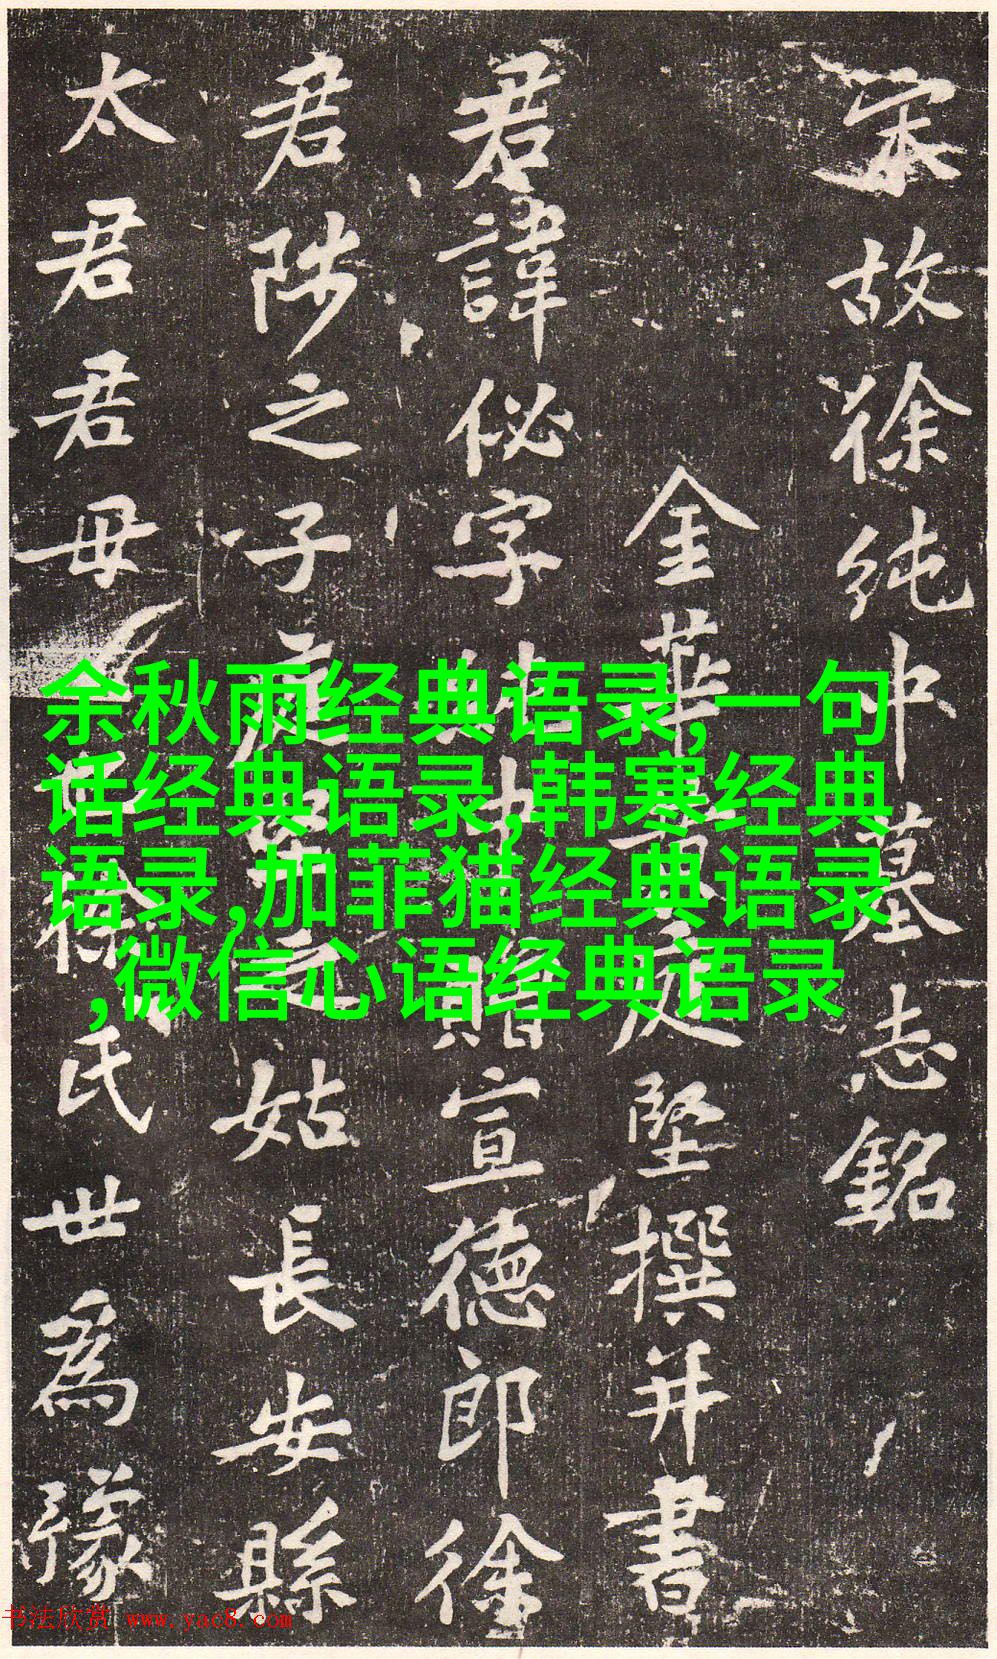 宋故徐纯中墓志銘
金華黃庭堅撰并書
君諱佖字
宣德郎徐
君陟之子
之姑長安縣
太君君母
徐氏世為豫
余秋雨经典语录,一句
话经典语录,韩寒经典
语录,加菲猫经典语录
,微信心语经典语录
书法欣赏 www.yac8.com